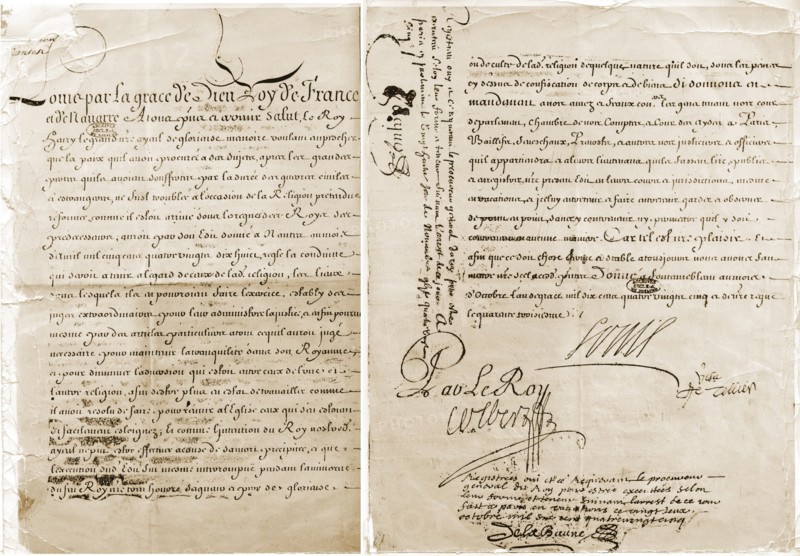 Louis par La grace de Dieu Roy de France
et de Navarre A tous presens et a venir Salut, le Roy
Henry le grand notre ayeul de glorieuse memoire voulant empescher
que la paix quil avoit procurée a ses sujets, apres les grandes
pertes quils avoient souffertes par la durée des guerres civiles
et estrangeres, ne fust troublée à l'occasion de la Religion pretendue
reformée, comme il estoit arrivé sous les regnes des Roys ses
predecesseurs, auroit par son Edit donné a Nantes au mois
d'avril mil cinq cens quatre vingt dix huit, reglé la conduite
qui seroit a tenir a l'egard de ceux de lad. religion, les lieux
dans lesquels ils en pourroient faire l'exercice, estably des
juges extraordinaires pour leur administrer la justice, et enfin pourveu
mesme par des articles particuliers a tout ce quil auroit jugé
necessaire pour maintenir la tranquilité dans son Royaume
et pour diminuer l'adversion qui estoit entre ceux de l'une et
l'autre religion, afin d'estre plus en estat de travailler comme
il avoit resolu de faire pour reunir a l'Eglise ceux qui s'en estoient
si facilement esloignez, et comme l'intention du Roy
ayeul ne put estre effectuée a cause de sa mort precipitée, et que
l'execution dud. Edit fut mesme interrompue pendant la minorité
du feu Roy notre tres honoré seigneur et pere de glorieuse
ou de culte de lad. religion de quelque nature quil soit, sous les peines
cy dessus de confiscation de corps et de biens, Si donnons en
mandement a nos amez et feaux cons. les gens tenans nos cours
de parlement, chambre de nos Comptes, et Cour des aydes a Paris
Baillifs, Seneschaux, Prevosts, et autres nos justiciers et officiers
quil appartiendra et a leurs lieutenans quils fassent lire, publier
et enregistrer nre present Edit en leurs cours et jurisdictions, mesme
en vacations, et iceluy entretenir et faire entretenir garder et observer
de point en point sans y contrevenir ny permettre quil y soit
contrevenu en aucune maniere Car tel est nre plaisir Et
afin que ce soit chose ferme et stable a tousjours nous avons fait
mettre nre scel a cesd. presentes Donné a Fontainebleau au mois
d'Octobre l'an de grace mil six cens quatre vingt cinq et de nre regne
le quarante troisieme
Louis
Visa
Le Tellier
Par Le Roy
Colbert
Registrées ouy et ce Requerant le procureur
general du Roy pour estre executées selon
leur forme et teneur suivant larrest de ce jour
fait a paris en vacations ce vingt deux
octobre mil six cens quatre vingt cinq
De la Baune